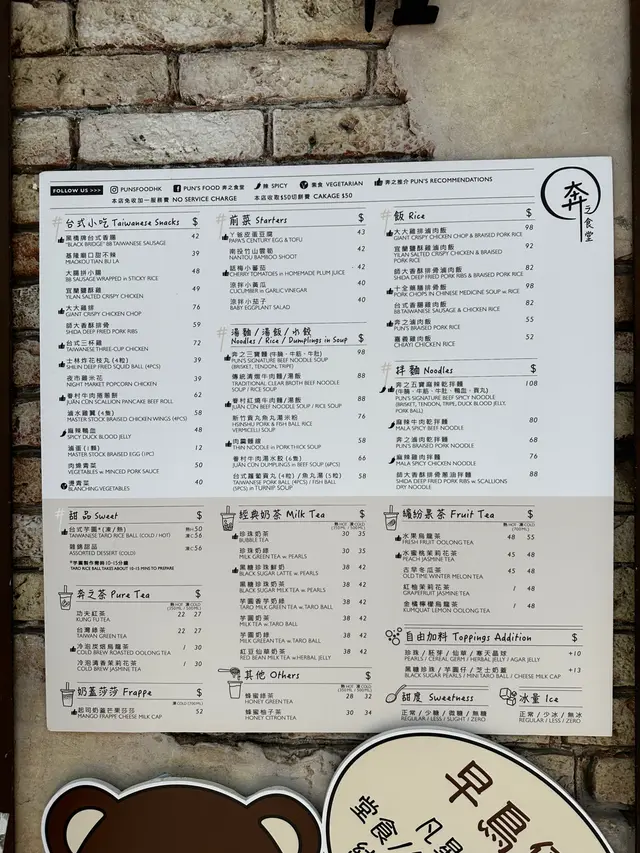 FOLLOW US >>> PUNSFOODHK PUN'S FOOD 奔之食堂 辣 SPICY 素食 VEGETARIAN 奔之推介 PUN'S RECOMMENDATIONS
本店免收加一服務費 NO SERVICE CHARGE 本店收取$50切餅費 CAKAGE $50
奔之食堂
# 台式小吃 Taiwanese Snacks $
黑橋牌台式香腸 42
"BLACK BRIDGE" BB TAIWANESE SAUSAGE
基隆廟口甜不辣 39
MIAOKOU TIAN BU LA
大腸拼小腸 48
BB SAUSAGE WRAPPED in STICKY RICE
宜蘭鹽酥雞 49
YILAN SALTED CRISPY CHICKEN
大大雞排 76
GIANT CRISPY CHICKEN CHOP
師大香酥排骨 59
SHIDA DEEP FRIED PORK RIBS
台式三杯雞 72
TAIWANESE THREE-CUP CHICKEN
士林炸花枝丸 (4粒) 39
SHILIN DEEP FRIED SQUID BALL (4PCS)
夜市雞米花 39
NIGHT MARKET POPCORN CHICKEN
眷村牛肉捲蔥餅 62
JUÀN CŪN SCALLION PANCAKE BEEF ROLL
滷水雞翼 (4隻) 58
MASTER STOCK BRAISED CHICKEN WINGS (4PCS)
麻辣鴨血 50
SPICY DUCK BLOOD JELLY
滷蛋 (1顆) 12
MASTER STOCK BRAISED EGG (1PC)
肉燥青菜 50
VEGETABLES w MINCED PORK SAUCE
燙青菜 40
BLANCHING VEGETABLES
# 前菜 Starters $
丫爸皮蛋豆腐 43
PAPA'S CENTURY EGG & TOFU
南投竹山雲筍 42
NANTOU BAMBOO SHOOT
話梅小蕃茄 42
CHERRY TOMATOES in HOMEMADE PLUM JUICE
涼拌小黃瓜 40
CUCUMBER in GARLIC VINEGAR
涼拌小茄子 40
BABY EGGPLANT SALAD
# 湯麵/湯飯/水餃 $
Noodles / Rice / Dumplings in Soup
奔之三寶麵 (牛腩、牛筋、牛肚) 98
PUN'S SIGNATURE BEEF NOODLE SOUP
(BRISKET, TENDON, TRIPE)
傳統清燉牛肉麵/湯飯 88
TRADITIONAL CLEAR BROTH BEEF NOODLE
SOUP / RICE SOUP
眷村紅燒牛肉麵/湯飯 88
JUÀN CŪN BEEF NOODLE SOUP / RICE SOUP
新竹貢丸魚丸湯米粉 76
HSINSHU PORK & FISH BALL RICE
VERMICELLI SOUP
肉羹麵線 58
THIN NOODLE in PORK THICK SOUP
眷村牛肉湯水餃 (6隻) 66
JUÀN CŪN DUMPLINGS in BEEF SOUP (6PCS)
台式蘿蔔貢丸 (4粒) / 魚丸湯 (5粒) 58
TAIWANESE PORK BALL (4PCS) / FISH BALL
(5PCS) in TURNIP SOUP
# 飯 Rice $
大大雞排滷肉飯 98
GIANT CRISPY CHICKEN CHOP & BRAISED PORK RICE
宜蘭鹽酥雞滷肉飯 92
YILAN SALTED CRISPY CHICKEN & BRAISED
PORK RICE
師大香酥排骨滷肉飯 82
SHIDA DEEP FRIED PORK RIBS & BRAISED PORK RICE
十全藥膳排骨飯 98
PORK CHOPS IN CHINESE MEDICINE SOUP w RICE
台式香腸雞肉飯 82
BB TAIWANESE SAUSAGE & CHICKEN RICE
奔之滷肉飯 55
PUN'S BRAISED PORK RICE
嘉義雞肉飯 52
CHIAYI CHICKEN RICE
# 拌麵 Noodles $
奔之五寶麻辣乾拌麵 108
(牛腩、牛筋、牛肚、鴨血、貢丸)
PUN'S SIGNATURE BEEF SPICY NOODLE
(BRISKET, TENDON, TRIPE, DUCK BLOOD JELLY,
PORK BALL)
麻辣牛肉乾拌麵 80
MALA SPICY BEEF NOODLE
奔之滷肉乾拌麵 68
PUN'S BRAISED PORK NOODLE
麻辣雞肉拌麵 76
MALA SPICY CHICKEN NOODLE
師大香酥排骨蔥油拌麵 88
SHIDA DEEP FRIED PORK RIBS w SCALLIONS
DRY NOODLE
# 甜品 Sweet $
台式芋圓* (凍/熱) 熱H 50
TAIWANESE TARO RICE BALL (COLD / HOT) 凍C 56
雜錦甜品 凍C 56
ASSORTED DESSERT (COLD)
*芋圓製作需時10-15分鐘
TARO RICE BALL TAKES ABOUT 10-15 MINS TO PREPARE
奔之茶 Pure Tea $
熱 HOT (350ML) 凍 COLD (500ML)
功夫紅茶 22 27
KUNG FU TEA
台灣綠茶 22 27
TAIWAN GREEN TEA
冷泡炭焙烏龍茶 / 30
COLD BREW ROASTED OOLONG TEA
冷泡清香茉莉花茶 / 30
COLD BREW JASMINE TEA
奶蓋莎莎 Frappe $
凍 COLD (700ML)
起司奶蓋芒果莎莎 52
MANGO FRAPPE CHEESE MILK CAP
# 經典奶茶 Milk Tea $
熱 HOT (350ML) 凍 COLD (500ML)
珍珠奶茶 30 35
BUBBLE TEA
珍珠奶綠 30 35
MILK GREEN TEA w. PEARLS
黑糖珍珠鮮奶 38 42
BLACK SUGAR LATTE w. PEARLS
黑糖珍珠奶茶 38 42
BLACK SUGAR MILK TEA w. PEARLS
芋圓香芋奶綠 38 42
TARO MILK GREEN TEA w. TARO BALL
芋圓奶茶 38 42
MILK TEA w. TARO BALL
芋圓奶綠 38 42
MILK GREEAN TEA w. TARO BALL
紅豆仙草奶茶 38 42
RED BEAN MILK TEA w. HERBAL JELLY
其他 Others $
熱 HOT (350ML) 凍 COLD (500ML)
蜂蜜綠茶 28 32
HONEY GREEN TEA
蜂蜜柚子茶 30 34
HONEY CITRON TEA
# 繽紛果茶 Fruit Tea $
熱 HOT (350ML) 凍 COLD (700ML)
水果烏龍茶 48 55
FRESH FRUIT OOLONG TEA
水蜜桃茉莉花茶 45 48
PEACH JASMINE TEA
古早冬瓜茶 45 48
OLD TIME WINTER MELON TEA
紅柚茉莉花茶 / 48
GRAPEFRUIT JASMINE TEA
金橘檸檬烏龍茶 / 48
KUMQUAT LEMON OOLONG TEA
自由加料 Toppings Addition $
珍珠 / 胚芽 / 仙草 / 寒天晶球 +10
PEARLS / CEREAL GERM / HERBAL JELLY / AGAR JELLY
黑糖珍珠 / 芋圓仔 / 芝士奶蓋 +13
BLACK SUGAR PEARLS / MINI TARO BALL / CHEESE MILK CAP
甜度 Sweetness
正常 / 少糖 / 微糖 / 無糖
REGULAR / LESS / SLIGHT / ZERO
冰量 Ice
正常 / 少冰 / 無冰
REGULAR / LESS / ZERO
早鳥
凡星
堂食/